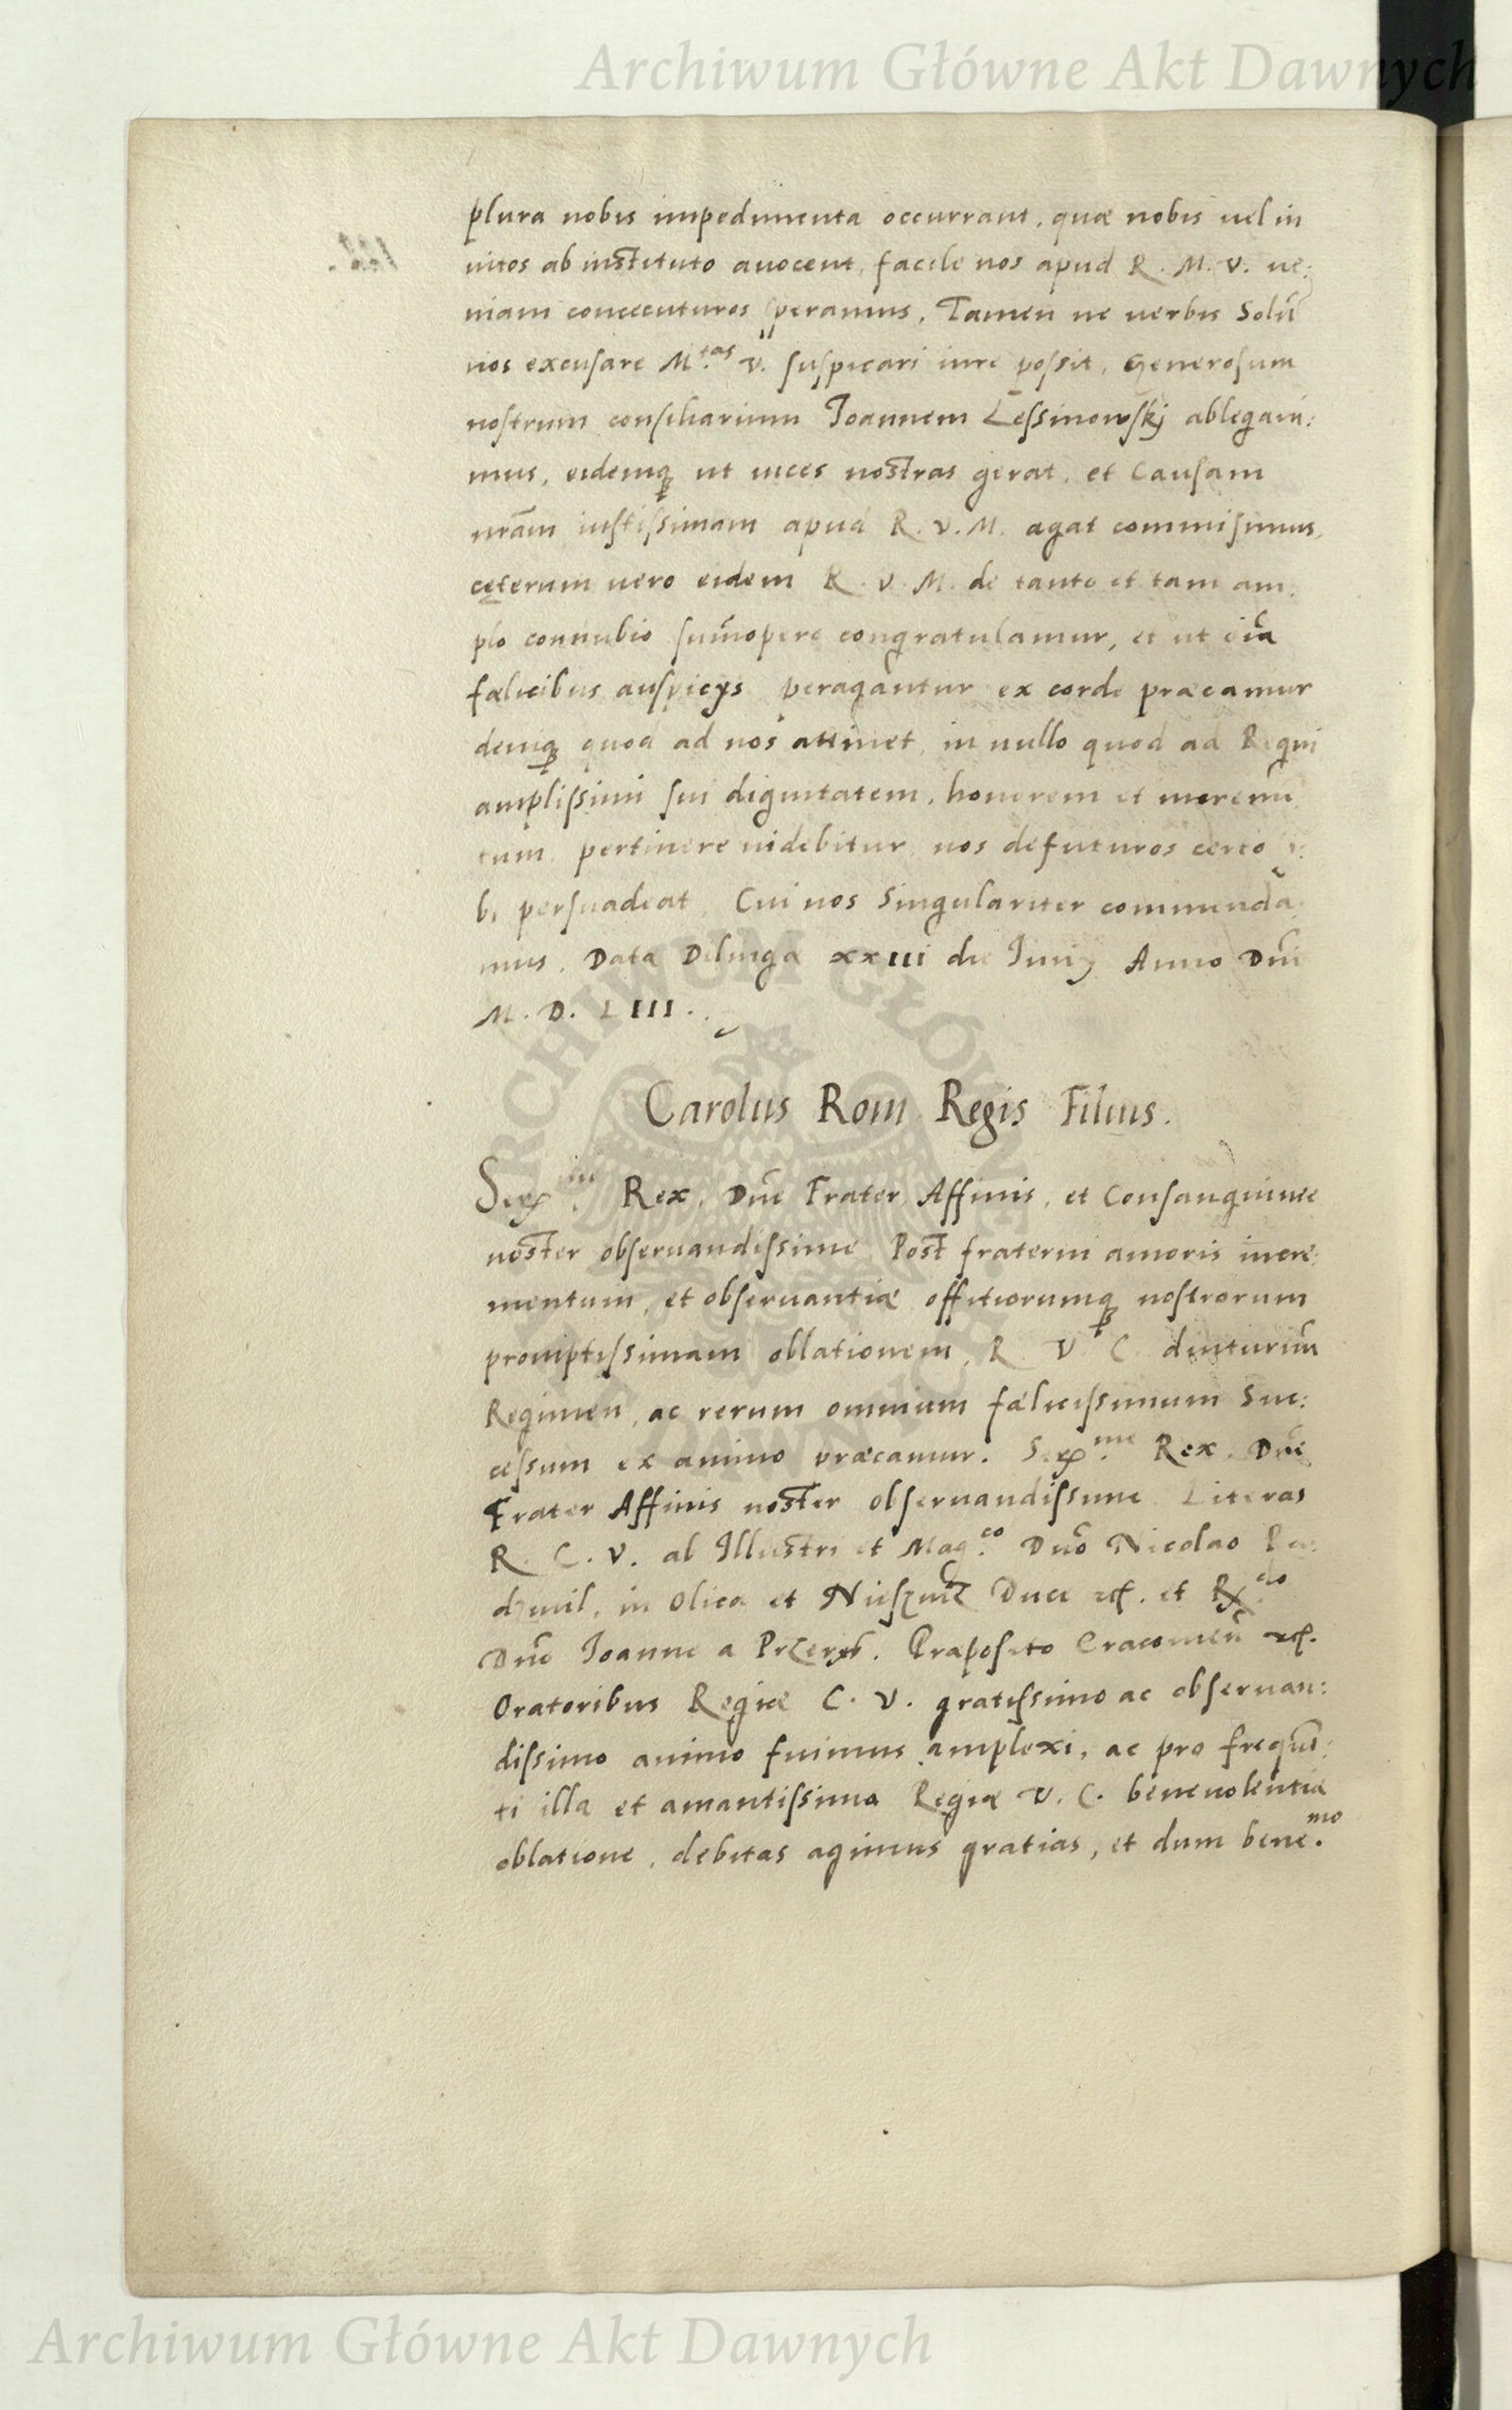 Archiwum Główne Akt Dawnych
plura nobis impedimenta occurrant, quæ nobis uel in
uitos ab instituto auocent, facile nos apud R. M. V. ue:
niam consecuturos speramus. Tamen ne uerbis Solū
nos excusare M.tas V. suspicari iure possit, Generosum
nostrum consiliarium Joannem Lessinowskj ablegaui:
mus, eidemq ut uices nostras gerat, et Causam
nr̄am iustissimam apud R. V. M. agat commisimus,
cęterum uero eidem R. V. M. de tanto et tam am:
plo connubio sum̄opere congratulamur, et ut oīa
fælicibus auspicys peragantur ex corde præcamur
demq quod ad nos attinet, in nullo quod ad Regni
amplissimi sui dignitatem, honorem et
tum, pertinere uidebitur, nos defuturos certo si:
bi persuadeat, Cui nos Singulariter commenda
mus. Data Dilingæ XXIII die Junij Anno Dn̄i
M. D. LIII.
Carolus Rom. Regis Filius.
Ser.me Rex, Dn̄e Frater Affinis, et Consanguinee
noster obseruandissime. Post fraterni amoris incre:
mentum, et obseruantiæ offitiorumq nostrorum
promptissimam oblationem, R. V. C. diuturnū
Regimen, ac rerum omnium fælicissimum Suc:
cessum ex animo præcamur. Ser.me Rex. Dn̄e
Frater Affinis noster obseruandissime. Literas
R. C. V. ab Illustri et Mag.co Dn̄o Nicolao Ra:
dziuil, in Olica et Duce etc. et R.do
Dn̄o Joanne a Przeremb. Præposito Cracouien̄ etc.
Oratoribus Regiæ C. V. gratissimo ac obseruan:
dissimo animo fuimus amplexi, ac pro frequē:
ti illa et amantissima Regiæ V. C. beneuolentiæ
oblatione, debitas agimus gratias, et dum bene.mo
ARCHIWUM GŁÓWNE AKT DAWNYCH
Archiwum Główne Akt Dawnych